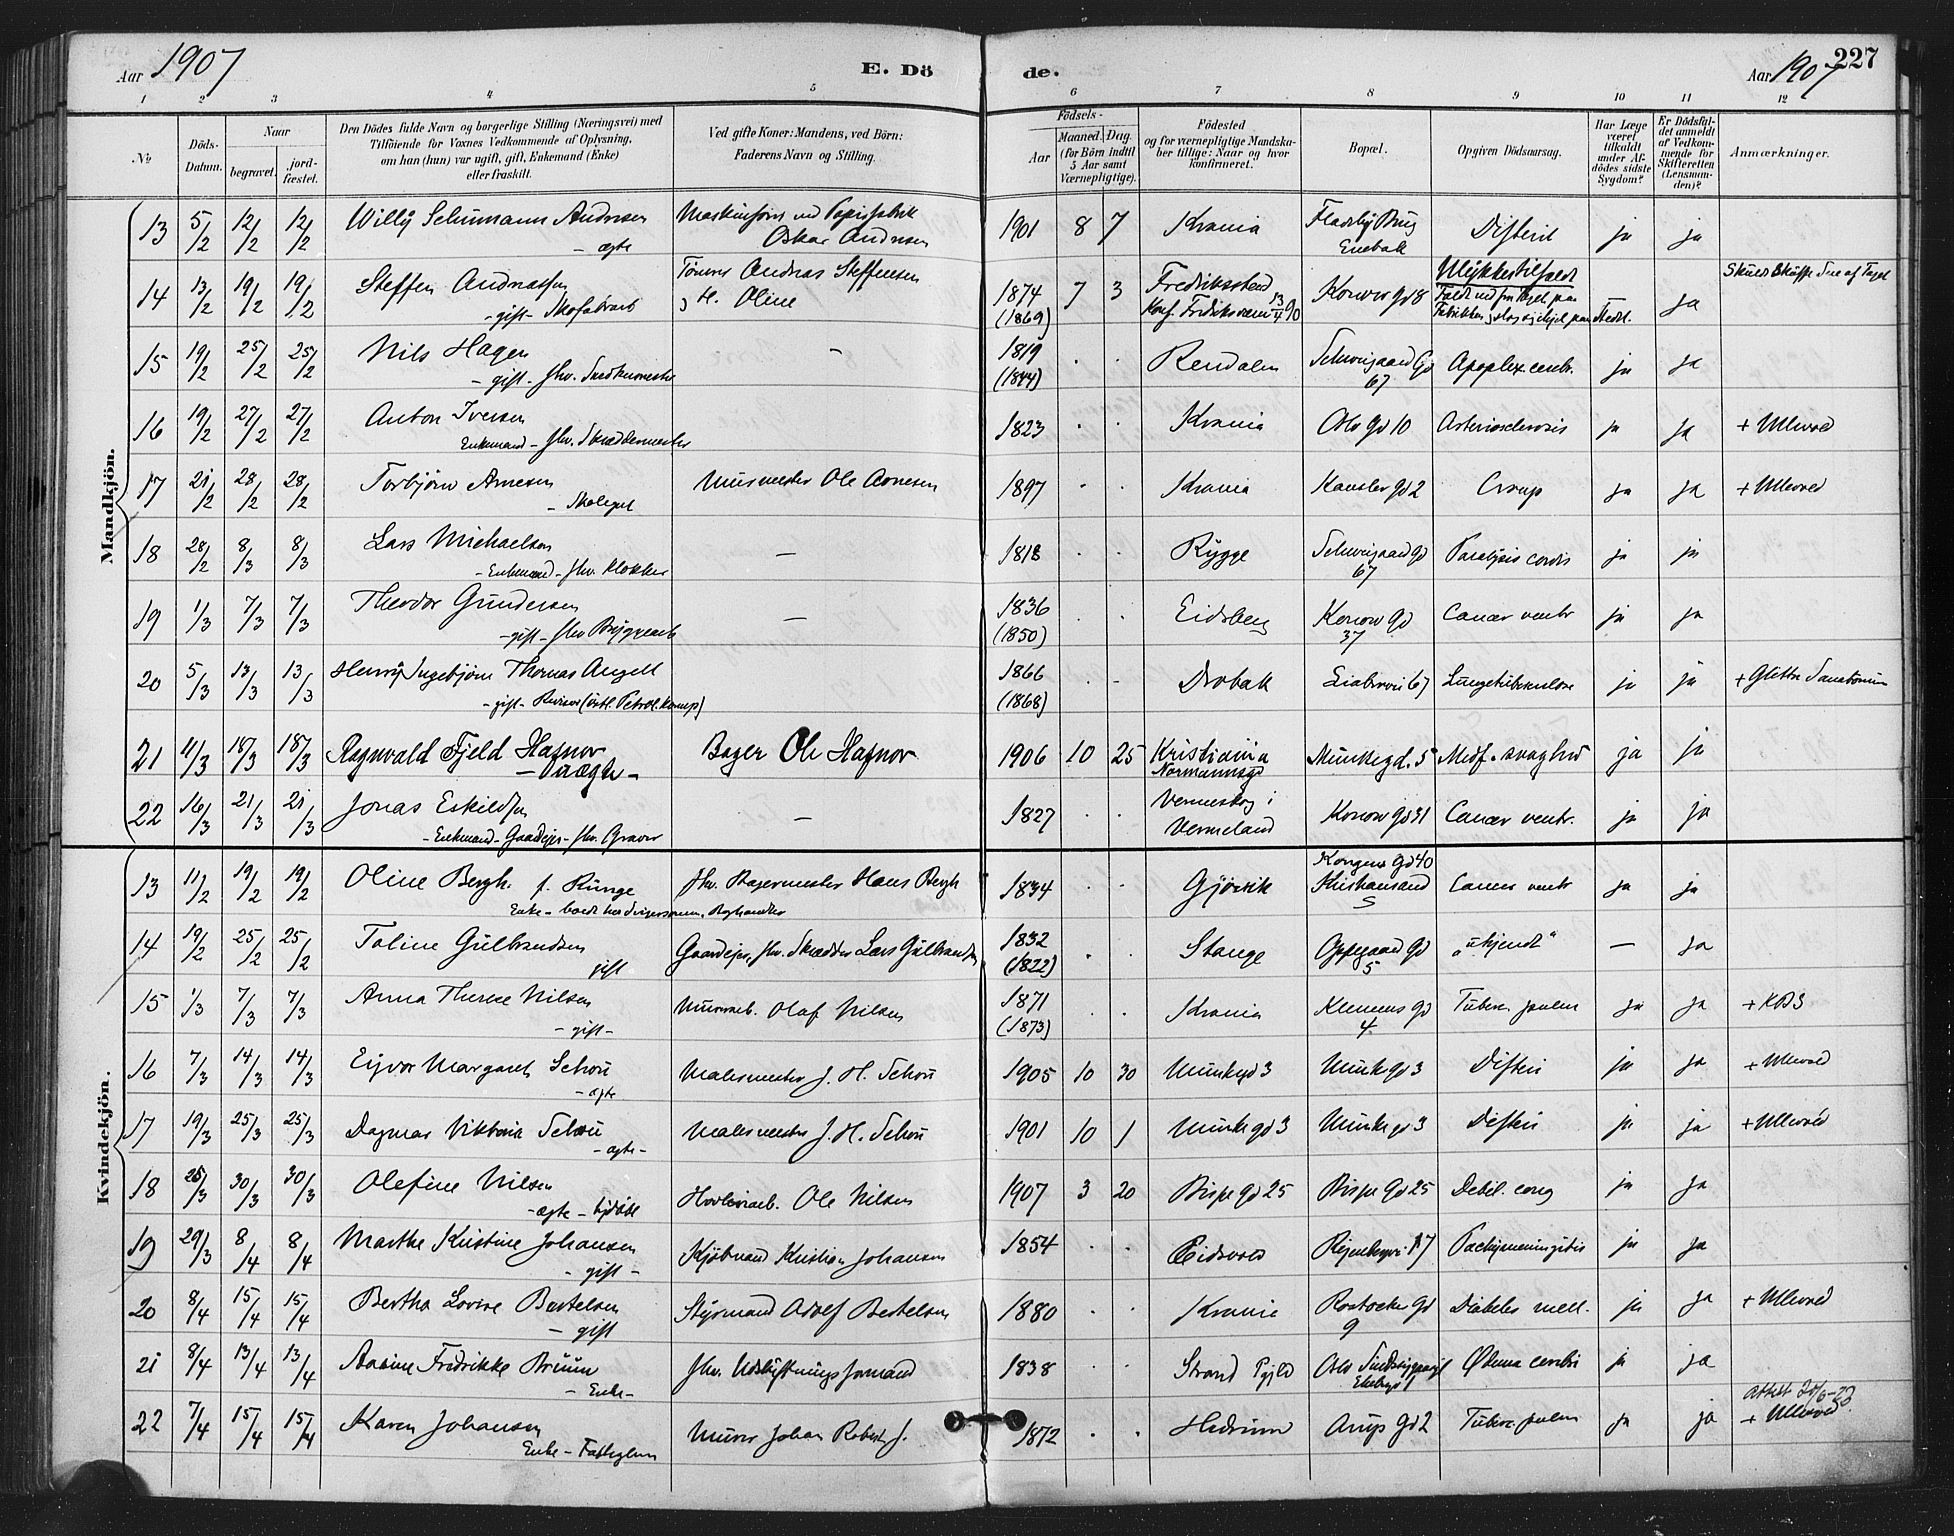 Aar 1907
E. Dö
de.
Aar 1907
227
1 2 3 4 5 6 7 8 9 10 11 12
No
Döds-Datum.
Naar
begravet.
jord-fæstet.
Den Dödes fulde Navn og borgerlige Stilling (Næringsvei) med
Tilföiende for Voxnes Vedkommende af Oplysning,
om han (hun) var ugift, gift, Enkemand (Enke)
eller fraskilt.
Ved gifte Koner: Mandens, ved Börn:
Faderens Navn og Stilling.
Födsels-
Aar
Maaned. Dag.
(for Börn indtil
5 Aar samt
Værnepligtige).
Födested
og for værnepligtige Mandska-
ber tillige: Naar og hvor
konfirmeret.
Bopæl.
Opgiven Dödsaarsag.
Har Læge
været
tilkaldt
under Af-
dödes sidste
Sygdom?
Er Dödsfal-
det anmeldt
af Vedkom-
mende for
Skifteretten
(Lensman-
den)?
Anmærkninger.
Mandkjön.
13 5/2 12/2 12/2 Willy Schumann Andresen - ægte Oskar Andresen 1901 8 7 Krania Enebak Difterit ja ja
14 13/2 19/2 19/2 Steffen Andreassen - gift - Andreas Steffensen Oline 1874 (1869) 7 3 Fredriksstad Konow Gd 8 Ulykkestilfælde ja
15 19/2 25/2 25/2 Nils Hagen - gift - fhv. - 1819 (1844) . . Rendalen Schweigaard Gd 67 Apoplex. cerebr. ja ja
16 19/2 27/2 27/2 Anton Iversen Enkemand - fhv. Skræddermester 1823 . . Krania Oslo Gd 10 Arteriosclerosis ja ja + Ullevold
17 21/2 28/2 28/2 Torbjörn Arnesen - Skolegut Murmester Ole Arnesen 1897 . . Krania Kansler Gd 2 Croup ja ja + Ullevold
18 28/2 8/3 8/3 Lars Michaelsen - Enkemand - fhv. Klokker - 1818 . . Rygge Schweigaard Gd 67 Paralysis cordis ja ja
19 1/3 7/3 7/3 Theodor Gundersen - gift - fhv Bryggearb - 1836 (1850) . . Eidsberg Konow Gd 37 Cancer ventr ja ja
20 5/3 13/3 13/3 Henry Ingebjörn Thomas Angell - gift - Revisor 1866 (1868) . . Drobak 67 Lungetuberkulose ja ja + Glittre Sanatorium
21 11/3 18/3 18/3 Ragnvald Fjeld Hafnor - uægte - Bager Ole Hafnor 1906 10 25 Kristiania Normannsgd Munkegd. 5 Medf. svaghed ja ja
22 16/3 21/3 21/3 Jonas Eskildsen - Enkemand - Gaardejer - fhv. Graver - 1827 . . Vermeland Konow Gd 31 Cancer ventr. ja ja
Kvindekjön.
13 11/2 19/2 19/2 Oline Bergh f. Runge Enke - fhv. Bagermester Hans Bergh 1834 . . Gjövik Kongens Gd 40 Kristiansand S Cancer ventr ja ja
14 19/2 25/2 25/2 Toline Gulbrandsen gift Gaardejer, fhv. Skrædder Lars Gulbrandsen 1832 (1822) . . Stange Oppegaard Gd 5 „ukjendt“ - ja
15 1/3 7/3 7/3 Anna Therese Nilsen - gift - Murerarb. Olaf Nilsen 1871 (1873) . . Krania Klemens Gd 4 Tuberc. pulm ja ja + KBS
16 7/3 14/3 14/3 Ejvor Margareth Schou - ægte Malermester J. H. Schou 1905 10 30 Munkegd 3 Munkegd 3 Difteri ja ja + Ullevold
17 19/3 25/3 25/3 Dagmar Viktoria Schou - ægte - Malermester J. H. Schou 1901 10 1 Munkegd 3 Munkegd 3 Difteri ja ja + Ullevold
18 25/3 30/3 30/3 Olefine Nilsen - ægte - hjdöbt Hovleriarb. Ole Nilsen 1907 3 20 Bispe Gd 25 Bispe Gd 25 Debil. cong ja ja
19 29/3 8/4 8/4 Marthe Kristine Johansen - gift - Kjöbmand Kristian Johansen 1854 . . Eidsvold 17 Pachymeningitis ja ja
20 8/4 15/4 15/4 Bertha Lovise Bertelsen - gift Styrmand Adolf Bertelsen 1880 . . Krania Rostocker Gd 9 Diabetes mell. ja ja + Ullevold
21 8/4 13/4 13/4 Aasine Fredrikke Bruun - Enke - fhv. Udskiftningsformand 1838 Strand Pgjld Oslo Ødema cerebri ja ja
22 7/4 15/4 15/4 Karen Johansen Enke - Fattiglem Murer Johan Robert J. 1872 . . Hedrum Arups Gd 2 Tuberc. pulm ja ja + Ullevold